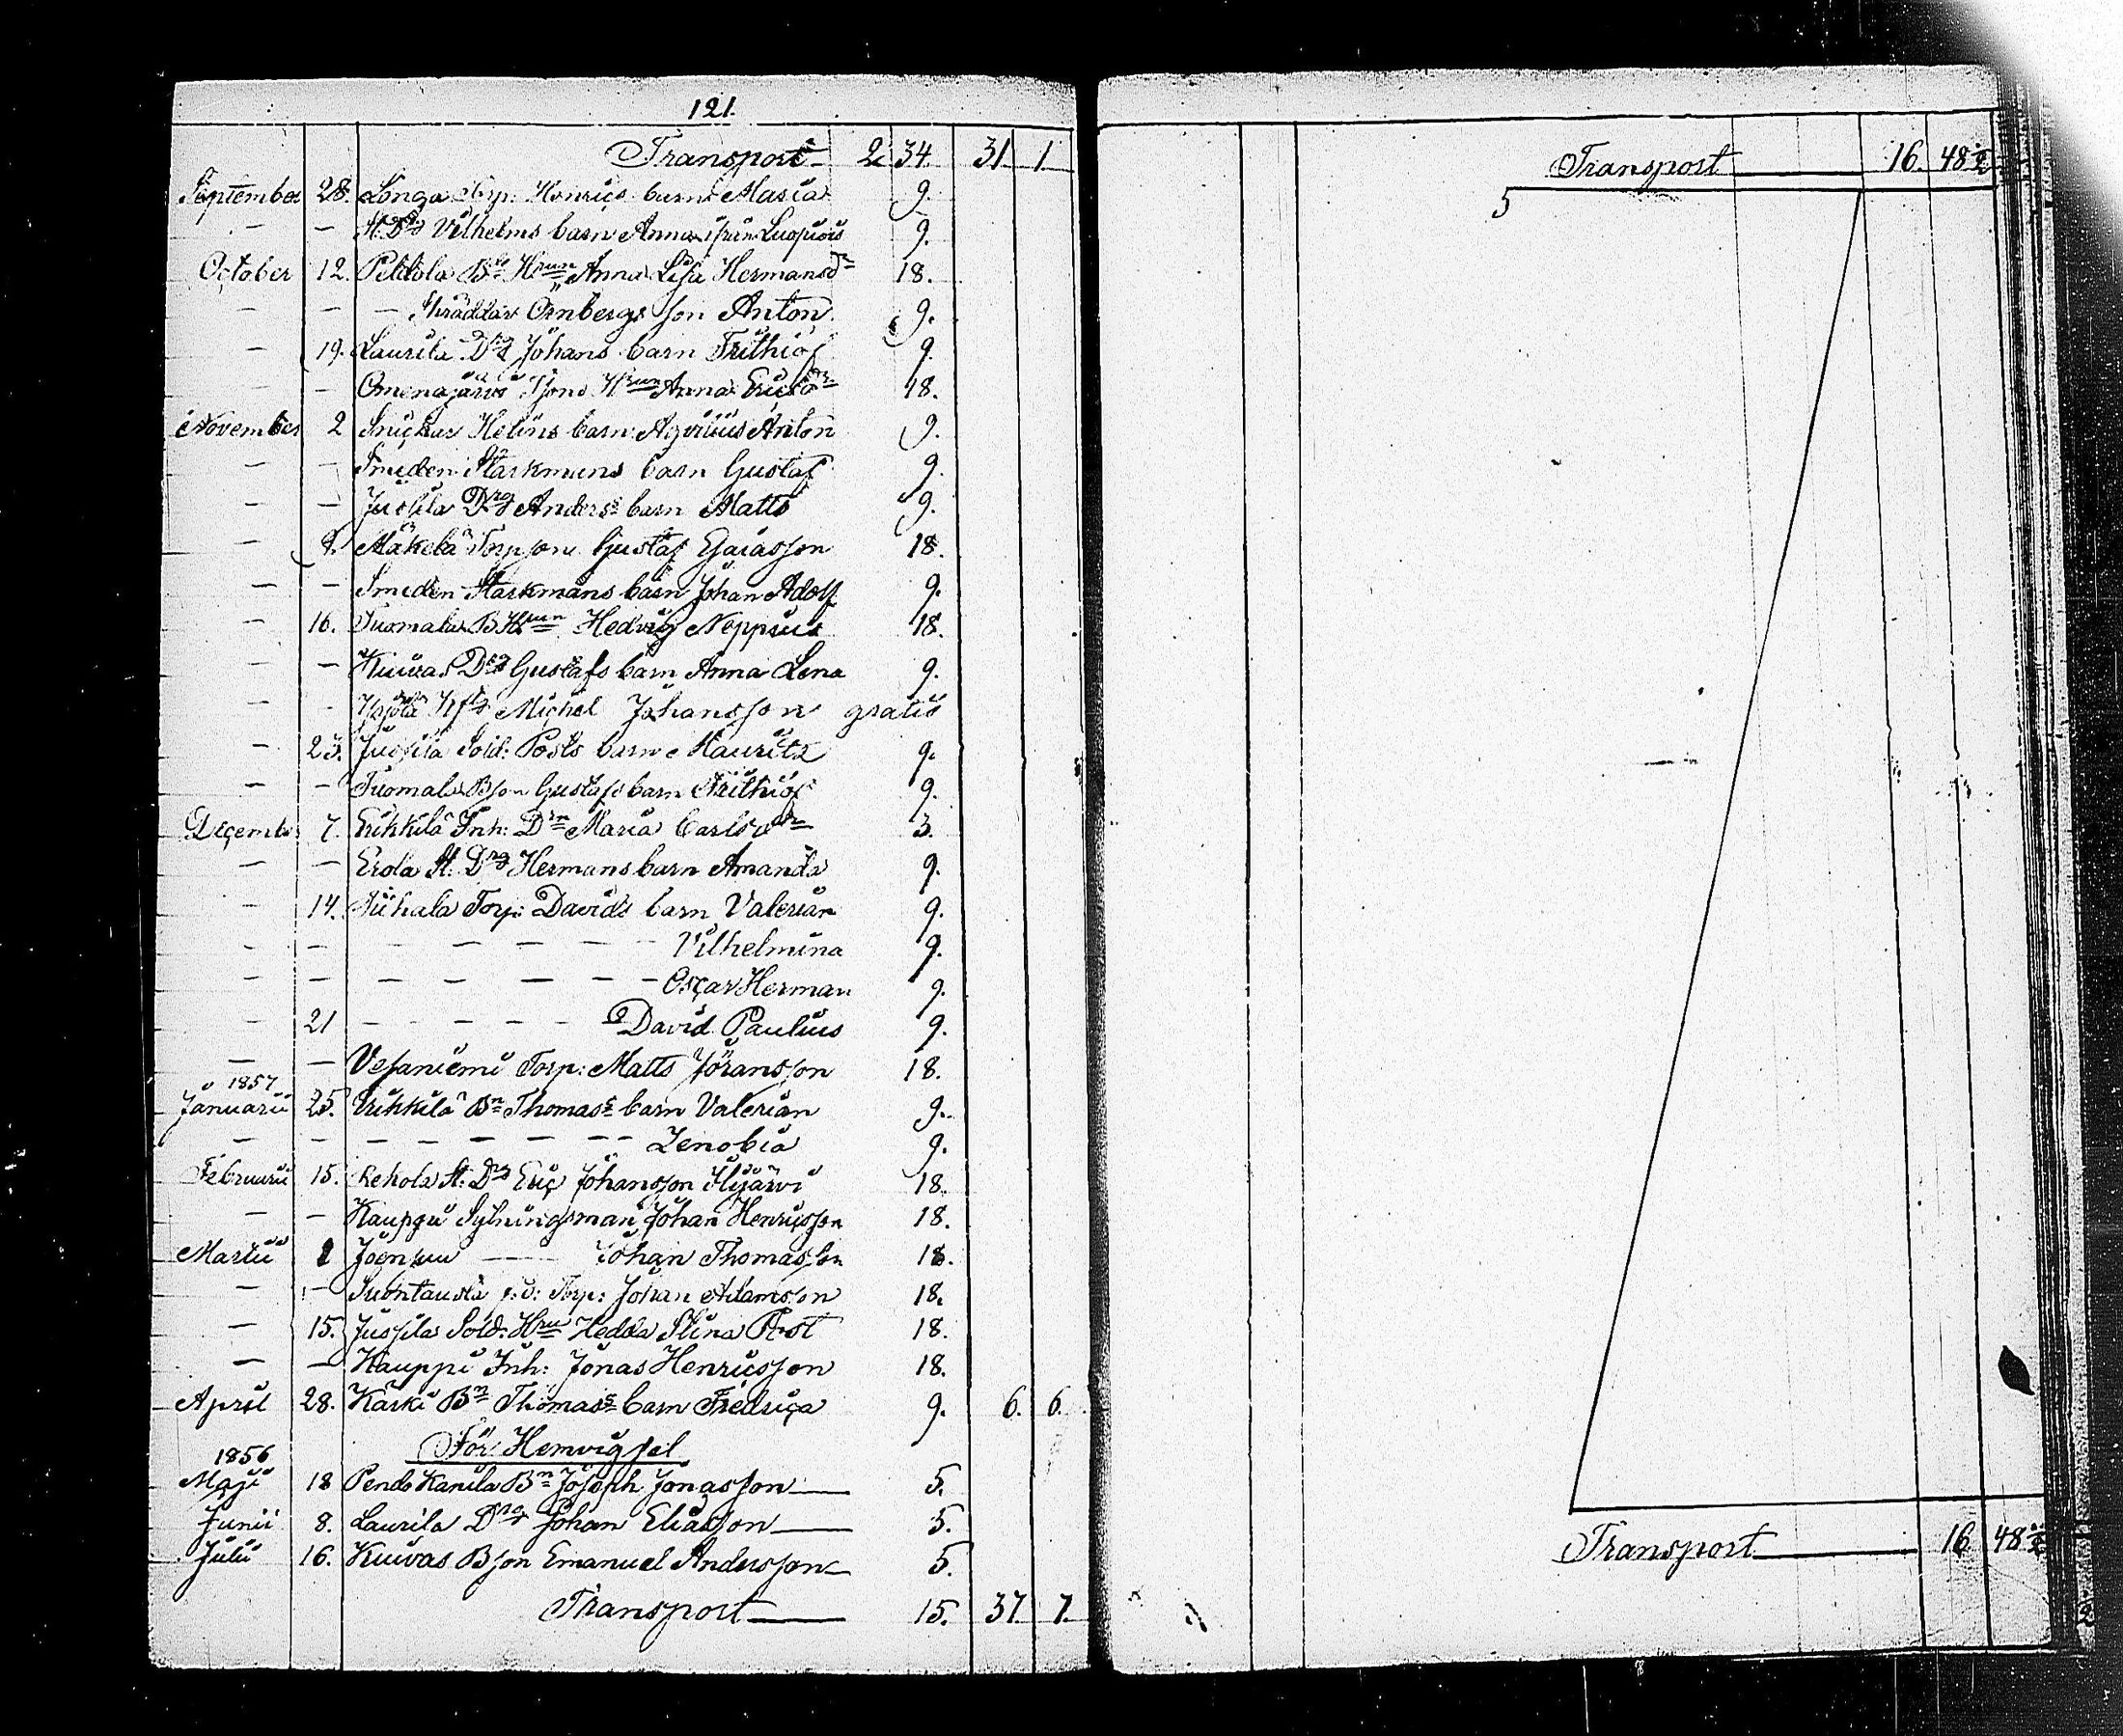 121.
Transport 2 34. 31 1
September 28. Longa Torp. Henrics barn Maria 9.
— — St. Drg Vilhelms barn Anna från Luopiois 9.
October 12. Peltola Bds Hrun Anna Lisa Hermansdr 18.
— — — Skräddar Ornbergs son Anton 9.
— 19. Laurila Drg Johans barn Frithiof 9.
— — Omenajärvi Sjons Hrun Anna Ericsdr 18.
November 2 Snickar Helins barn Anton 9.
— — Smeden Starkmans barn Gustaf 9.
— — Jussila Drg Anders barn Matts 9.
— 9. Mäkelä Torpson Gustaf Esaiasson 18.
— — Smeden Starkmans barn Johan Adolf 9.
— 16. Tuomala B Hrun Hedvig Neppius 18.
— — Kuivas Drg Gustafs barn Anna Lena 9.
— — Michel Johansson gratis
— 23. Jussila Sold: Posts barn Mauritz 9.
— — Tuomala Bson Gustafs barn Frithiof 9.
December 7. Erikkilä Inh: Drn Maria Carlsdr 3.
— — Erola St. Drg Hermans barn Amanda 9.
— 14. Torp: Davids barn Valerian 9.
— — — — — — — Vilhelmina 9.
— — — — — — — Oscar Herman 9.
— 21 — — — — — David Paulus 9.
— — Vesaniemi Torp: Matts Jöransson 18.
1857
Januarii 25. Erikkilä Bn Thomas barn Valerian 9.
— — — — — — — — Zenobia 9.
Februarii 15. Rekola St. Drg Eric Johansson Ilijärvi 18.
— — Kauppi Sytningsman Johan Henricsson 18.
Martii 1 Joensuu — Johan Thomasson 18.
— — Suontausta Torp: Johan Adamsson 18.
— 15. Jussila Sold: Hru Hedda Stina Post 18.
— — Kauppi Inh: Jonas Henricsson 18.
April 28. Kärki Bn Thomas barn Fredrica 9. 6. 6.
För Hemvigsel
1856
Maji 18 Pendo Kanila Bn Joseph Jonasson — 5.
Junii 8. Laurila Drg Johan Eliasson — 5.
Julii 16. Kuivas Bson Emanuel Andersson — 5.
Transport — 15. 37. 7.
Transport — 16. 48 1/2
5
Transport — 16 48 1/2